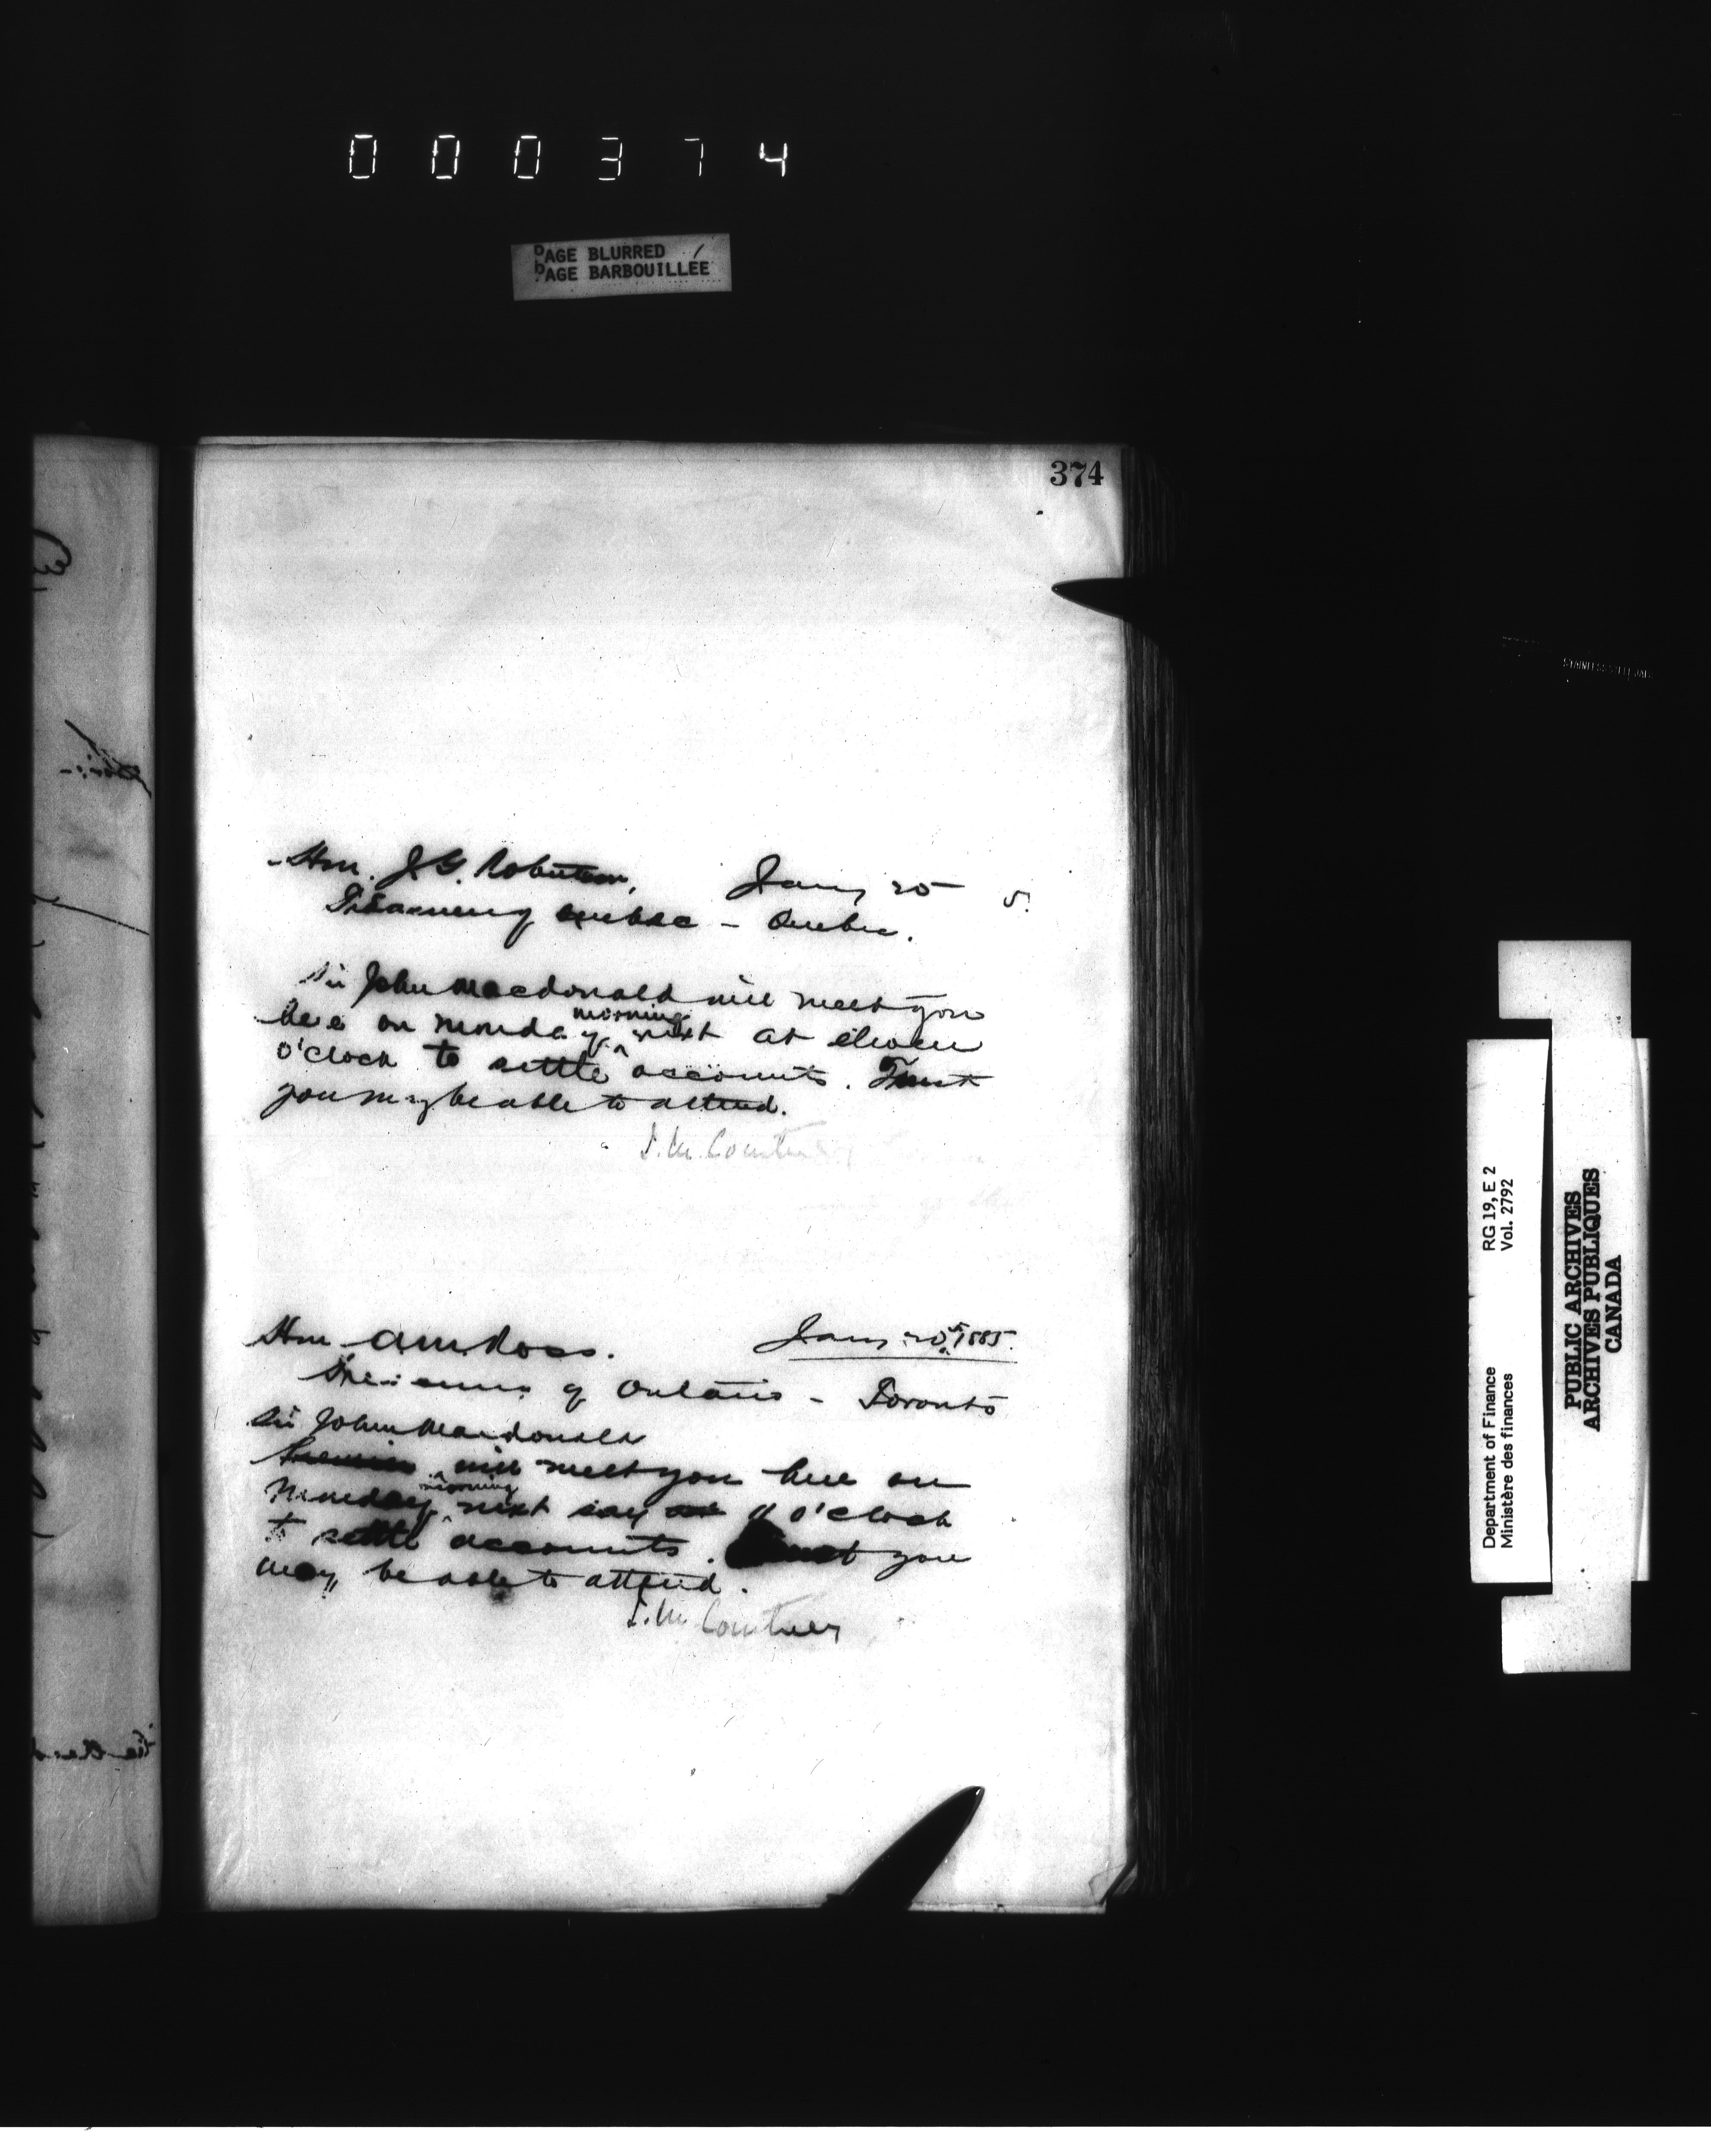 000374
PAGE BLURRED
PAGE BARBOUILLÉE
374
Hon. J.G. Robertson, Jany 20 5.
Treasurer of Quebec - Quebec.
Sir John Macdonald will meet you
here on Monday morning next at eleven
o'clock to settle accounts. Trust
you may be able to attend.
J.M. Courtney
Hon A.M. Ross. Jany 20th, 1885.
Treasurer of Ontario - Toronto
Sir John Macdonald
Premier will meet you here on
Monday morning next say at 11 o'clock
to settle accounts. Trust you
may be able to attend.
J.M. Courtney
Department of Finance RG 19, E 2
Ministère des finances Vol. 2792
PUBLIC ARCHIVES
ARCHIVES PUBLIQUES
CANADA